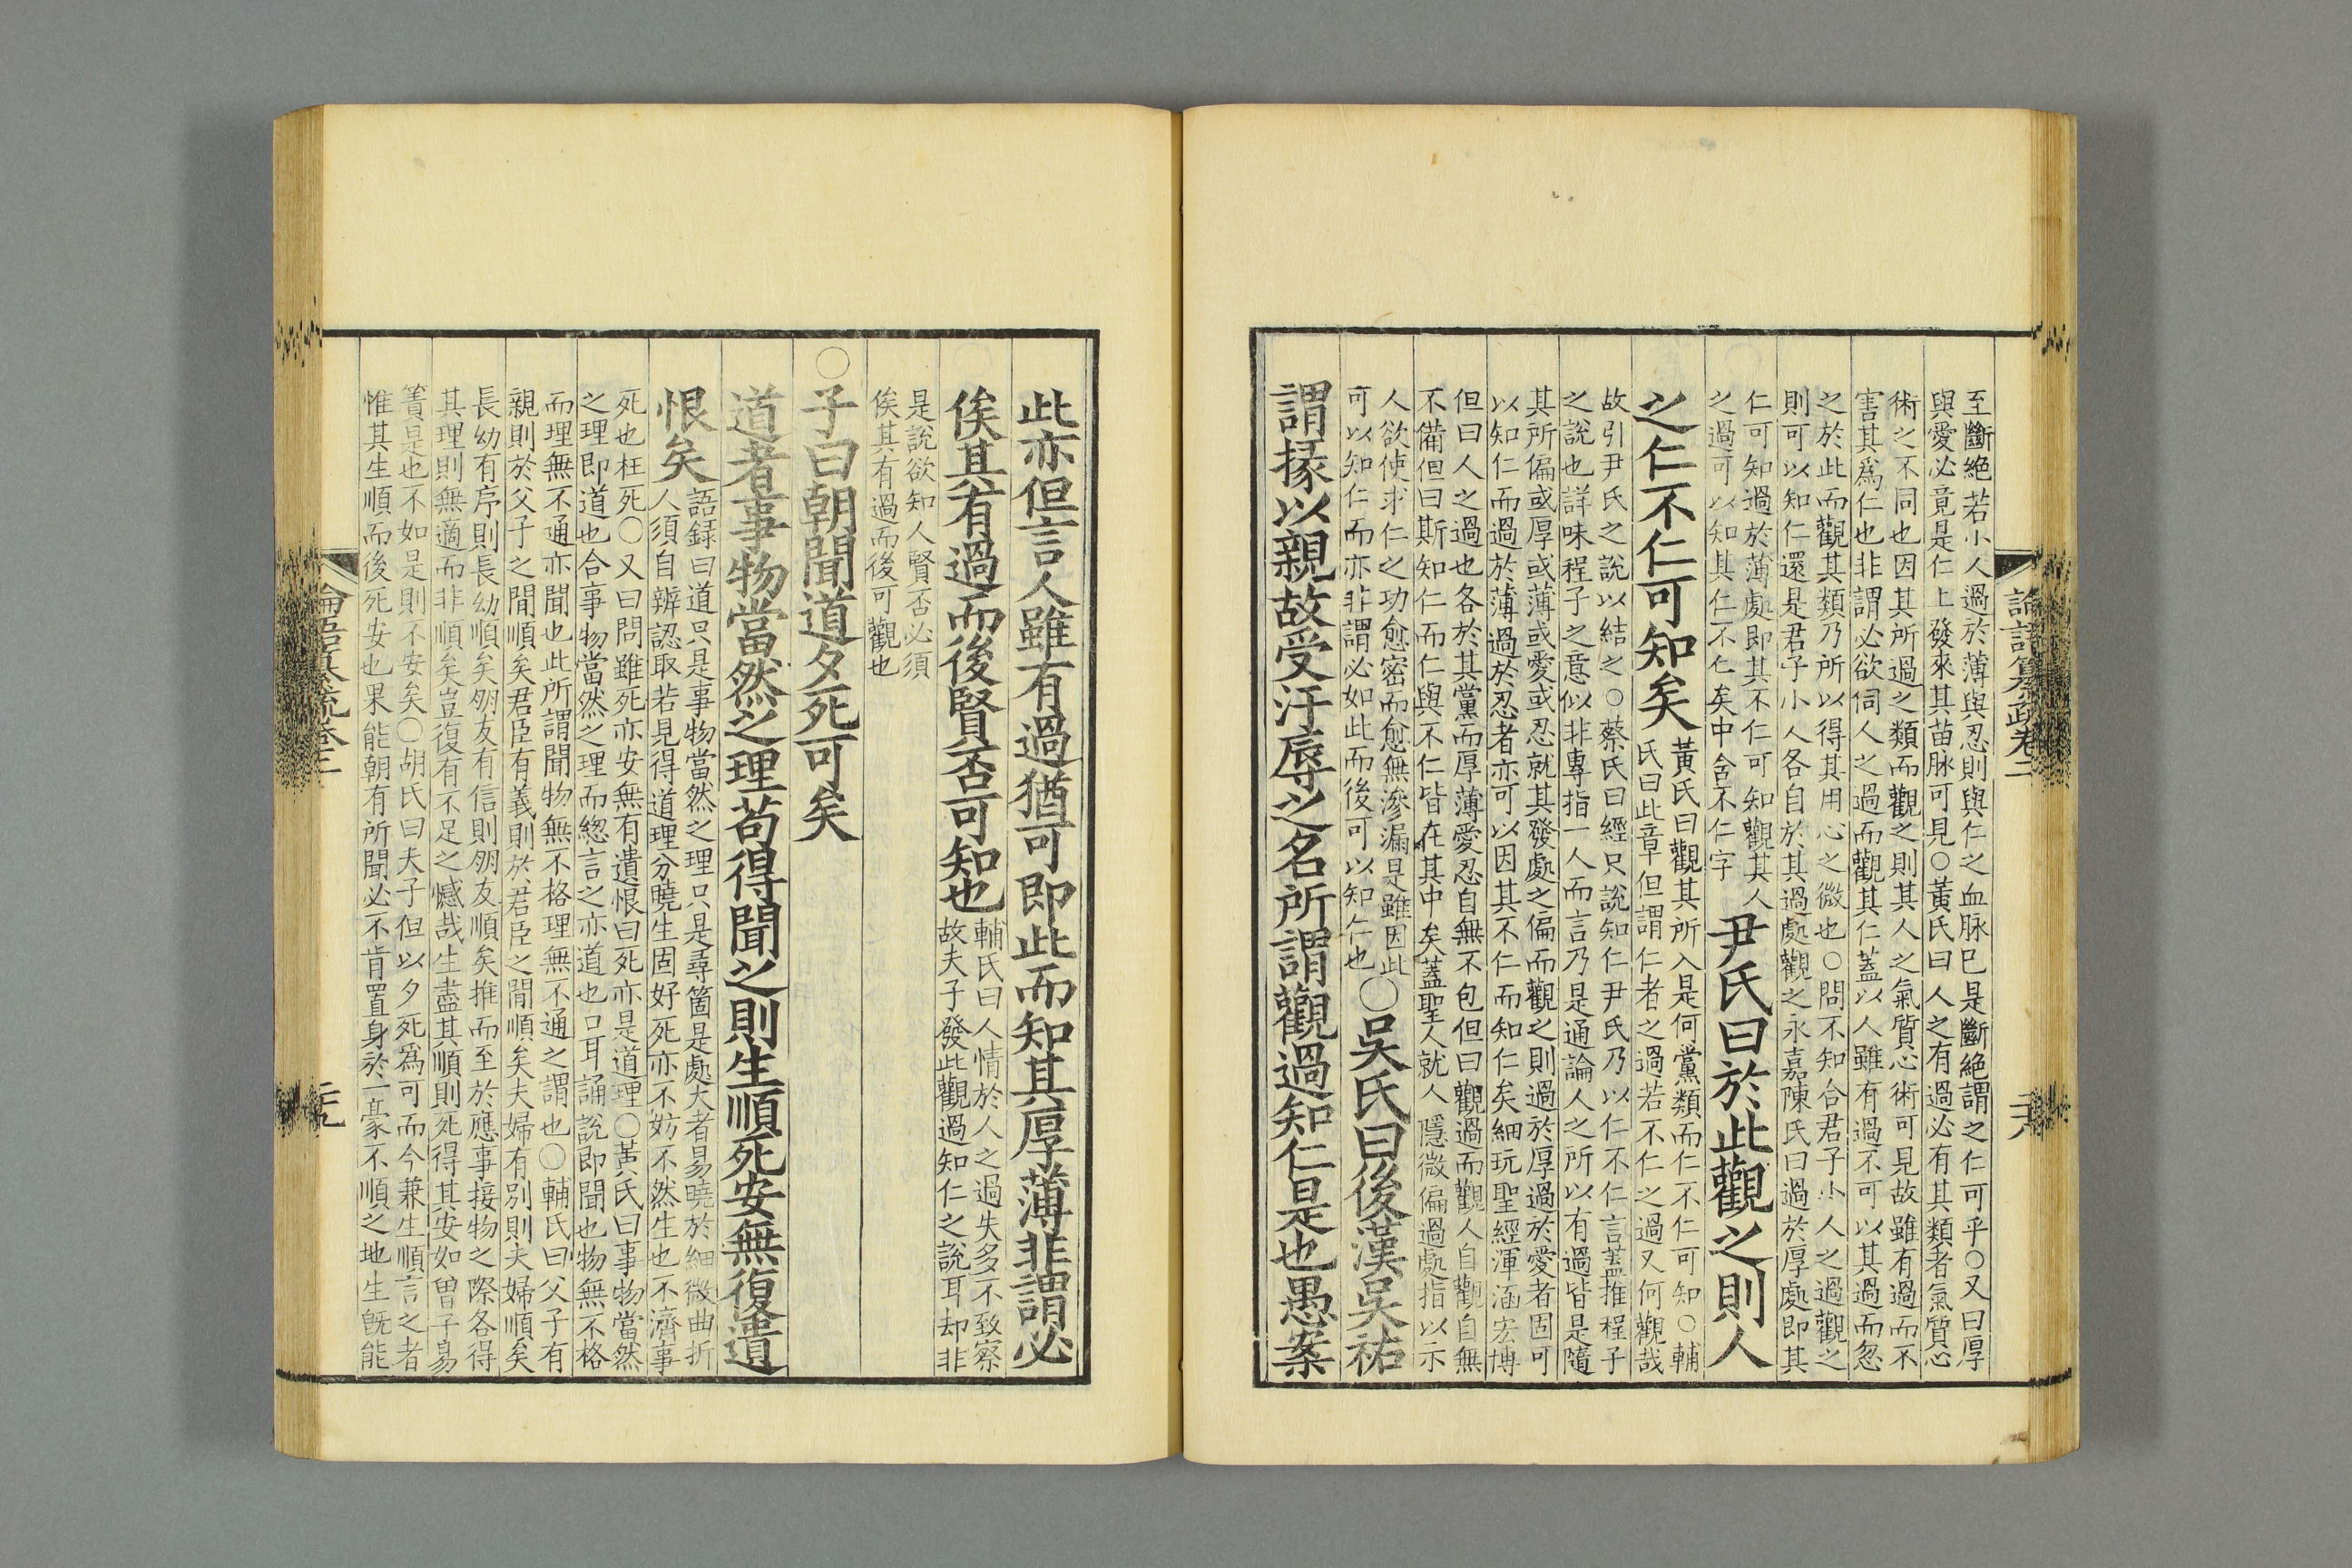 論語纂疏卷二
至斷絕若小人過於薄與忍則與仁之血脉已是斷絕謂之仁可乎○又曰厚
與愛必竟是仁上發來其苗脉可見○黃氏曰人之有過必有其類者氣質心
術之不同也因其所過之類而觀之則其人之氣質心術可見故雖有過而不
害其爲仁也非謂必欲伺人之過而觀其仁蓋以人雖有過不可以其過而忽
之於此而觀其類乃所以得其用心之微也○問不知合君子小人之過觀之
則可以知仁還是君子小人各自於其過處觀之永嘉陳氏曰過於厚處即其
仁可知過於薄處即其不仁可知觀其人
之過可以知其仁不仁矣中含不仁字
尹氏曰於此觀之則人
之仁不仁可知矣
黃氏曰觀其所入是何黨類而仁不仁可知○輔
氏曰此章但謂仁者之過若不仁之過又何觀哉
故引尹氏之說以結之○蔡氏曰經只說知仁尹氏乃以仁不仁言蓋推程子
之說也詳味程子之意似非專指一人而言乃是通論人之所以有過皆是隨
其所偏或厚或薄或愛或忍就其發處之偏而觀之則過於厚過於愛者固可
以知仁而過於薄過於忍者亦可以因其不仁而知仁矣細玩聖經渾涵宏博
但曰人之過也各於其黨而厚薄愛忍自無不包但曰觀過而觀人自觀自無
不備但曰斯知仁而仁與不仁皆在其中矣蓋聖人就人隱微偏過處指以示
人欲使求仁之功愈密而愈無滲漏是雖因此
可以知仁而亦非謂必如此而後可以知仁也
○吳氏曰後漢吳祐
謂掾以親故受汙辱之名所謂觀過知仁是也愚案
此亦但言人雖有過猶可即此而知其厚薄非謂必
俟其有過而後賢否可知也
輔氏曰人情於人之過失多不致察
故夫子發此觀過知仁之說耳却非
是說欲知人賢否必須
俟其有過而後可觀也
○子曰朝聞道夕死可矣
道者事物當然之理苟得聞之則生順死安無復遺
恨矣
語録曰道只是事物當然之理只是尋箇是處大者易曉於細微曲折
人須自辨認取若見得道理分曉生固好死亦不妨不然生也不濟事
死也枉死○又曰問雖死亦安無有遺恨曰死亦是道理○黃氏曰事物當然
之理即道也合事物當然之理而緫言之亦道也口耳誦說即聞也物無不格
而理無不通亦聞也此所謂聞物無不格理無不通之謂也○輔氏曰父子有
親則於父子之閒順矣君臣有義則於君臣之閒順矣夫婦有別則夫婦順矣
長幼有序則長幼順矣朋友有信則朋友順矣推而至於應事接物之際各得
其理則無適而非順矣豈復有不足之憾哉生盡其順則死得其安如曾子易
簀是也不如是則不安矣○胡氏曰夫子但以夕死爲可而今兼生順言之者
惟其生順而後死安也果能朝有所聞必不肯置身於一豪不順之地生既能
論語纂疏卷二